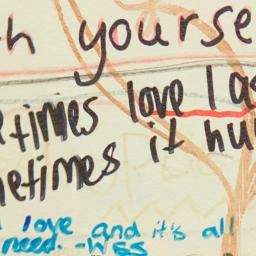 h yourse
etimes love las
etimes it hu
love and it's all
need. -WSS